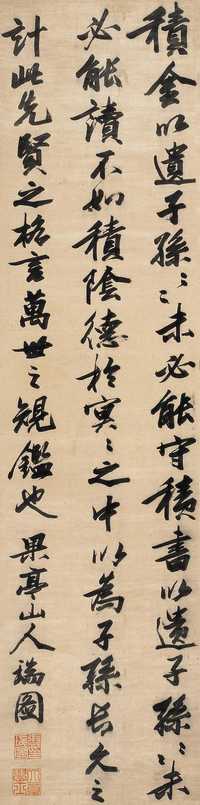 積金以遺子孫〻〻未必能守積書以遺子孫〻〻未
必能讀不如積陰德於冥〻之中以為子孫長久之
計此先賢之格言萬世之規鑑也 果亭山人瑞圖